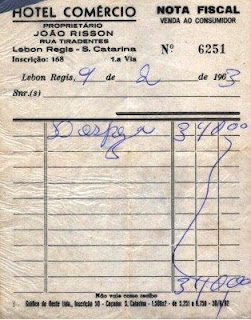 HOTEL COMÉRCIO
PROPRIETÁRIO
JOÃO RISSON
RUA TIRADENTES
Lebon Regis - S. Catarina
Inscrição: 168 1.a Via
NOTA FISCAL
VENDA AO CONSUMIDOR
Nº 6251
Lebon Regis, 9 de 2 de 1963
Snr.(s)
34000
34000
Não vale como recibo
Gráfica do Oeste Ltda., Inscrição 50 - Caçador - S. Catarina